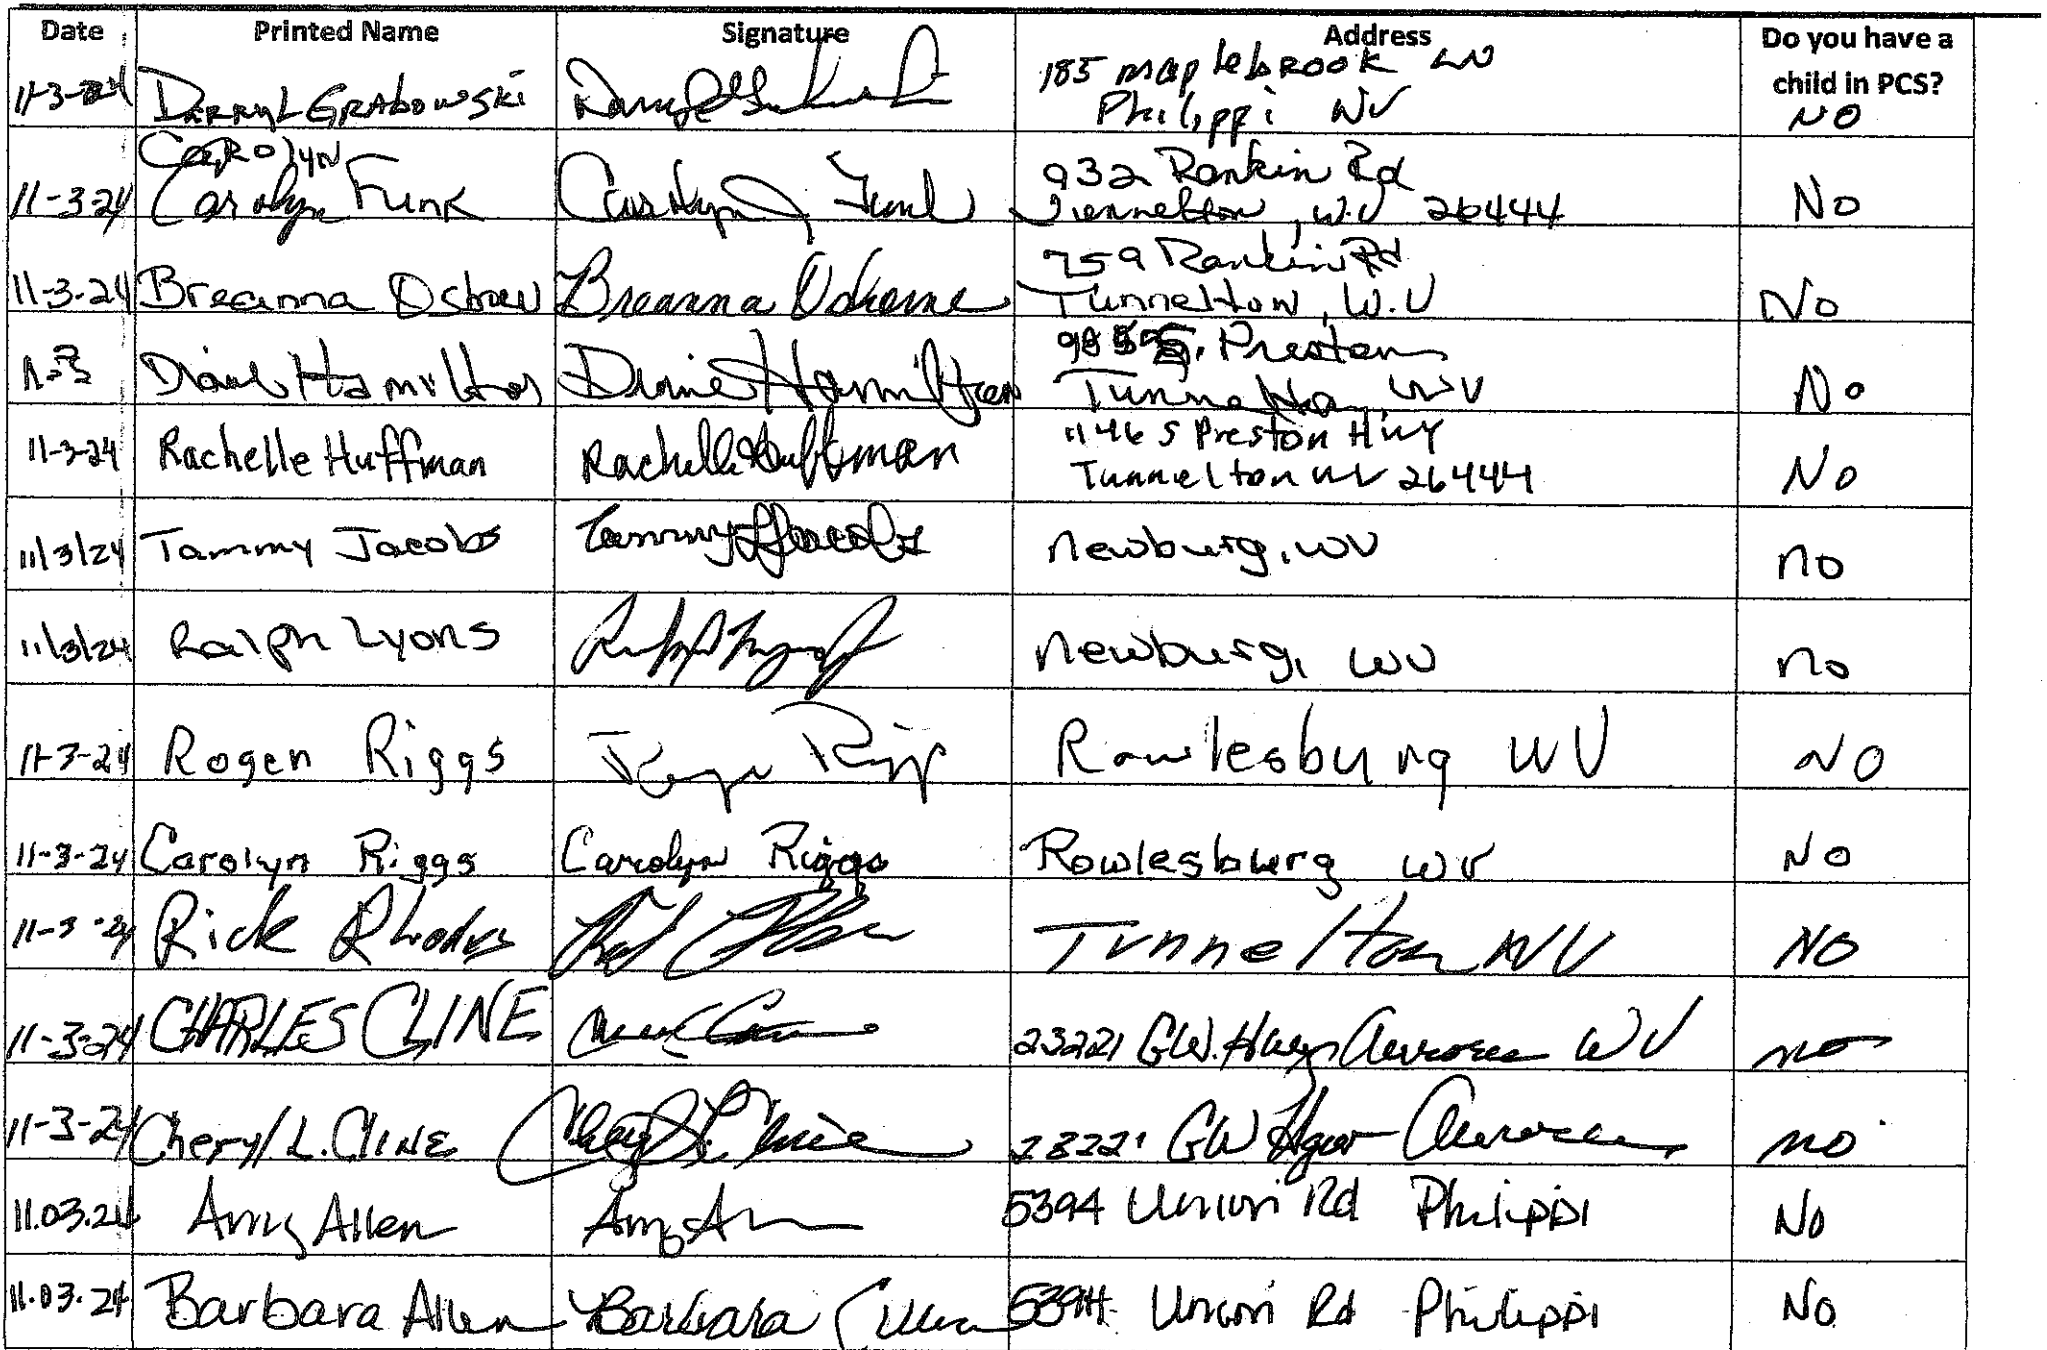 Date Printed Name Signature Address Do you have a child in PCS?
11-3-24 Darryl Grabowski 185 maplebrook LN Philippi WV NO
Carolyn
11-3-24 Carolyn Funk Carolyn J Funk 932 Rankin Rd Tunnelton, W.V 26444 No
11-3-24 Breanna Breanna Osborne 759 Rankin Rd Tunnelton, W.V No
11-3 Diane Hamilton Diane Hamilton S. Preston Tunnelton WV No
11-3-24 Rachelle Huffman Rachelle Huffman 1146 S Preston Hwy Tunnelton WV 26444 No
11/3/24 Tammy Jacobs Tammy Jacobs Newburg, WV no
11/3/24 Ralph Lyons Newburg, WV no
11-3-24 Roger Riggs Roger Riggs Rowlesburg WV NO
11-3-24 Carolyn Riggs Carolyn Riggs Rowlesburg WV No
11-3-24 Rick Rhodes Tunnelton WV NO
11-3-24 CHARLES CLINE 23221 GW. Hwy Aurora WV no
11-3-24 Cheryl L. CLINE Cheryl L. Cline 23221 GW Hgwy Aurora no
11.03.24 Amy Allen Amy A 5394 Union Rd Philippi No
11.03.24 Barbara Allen Barbara Allen 5394 Union Rd Philippi No